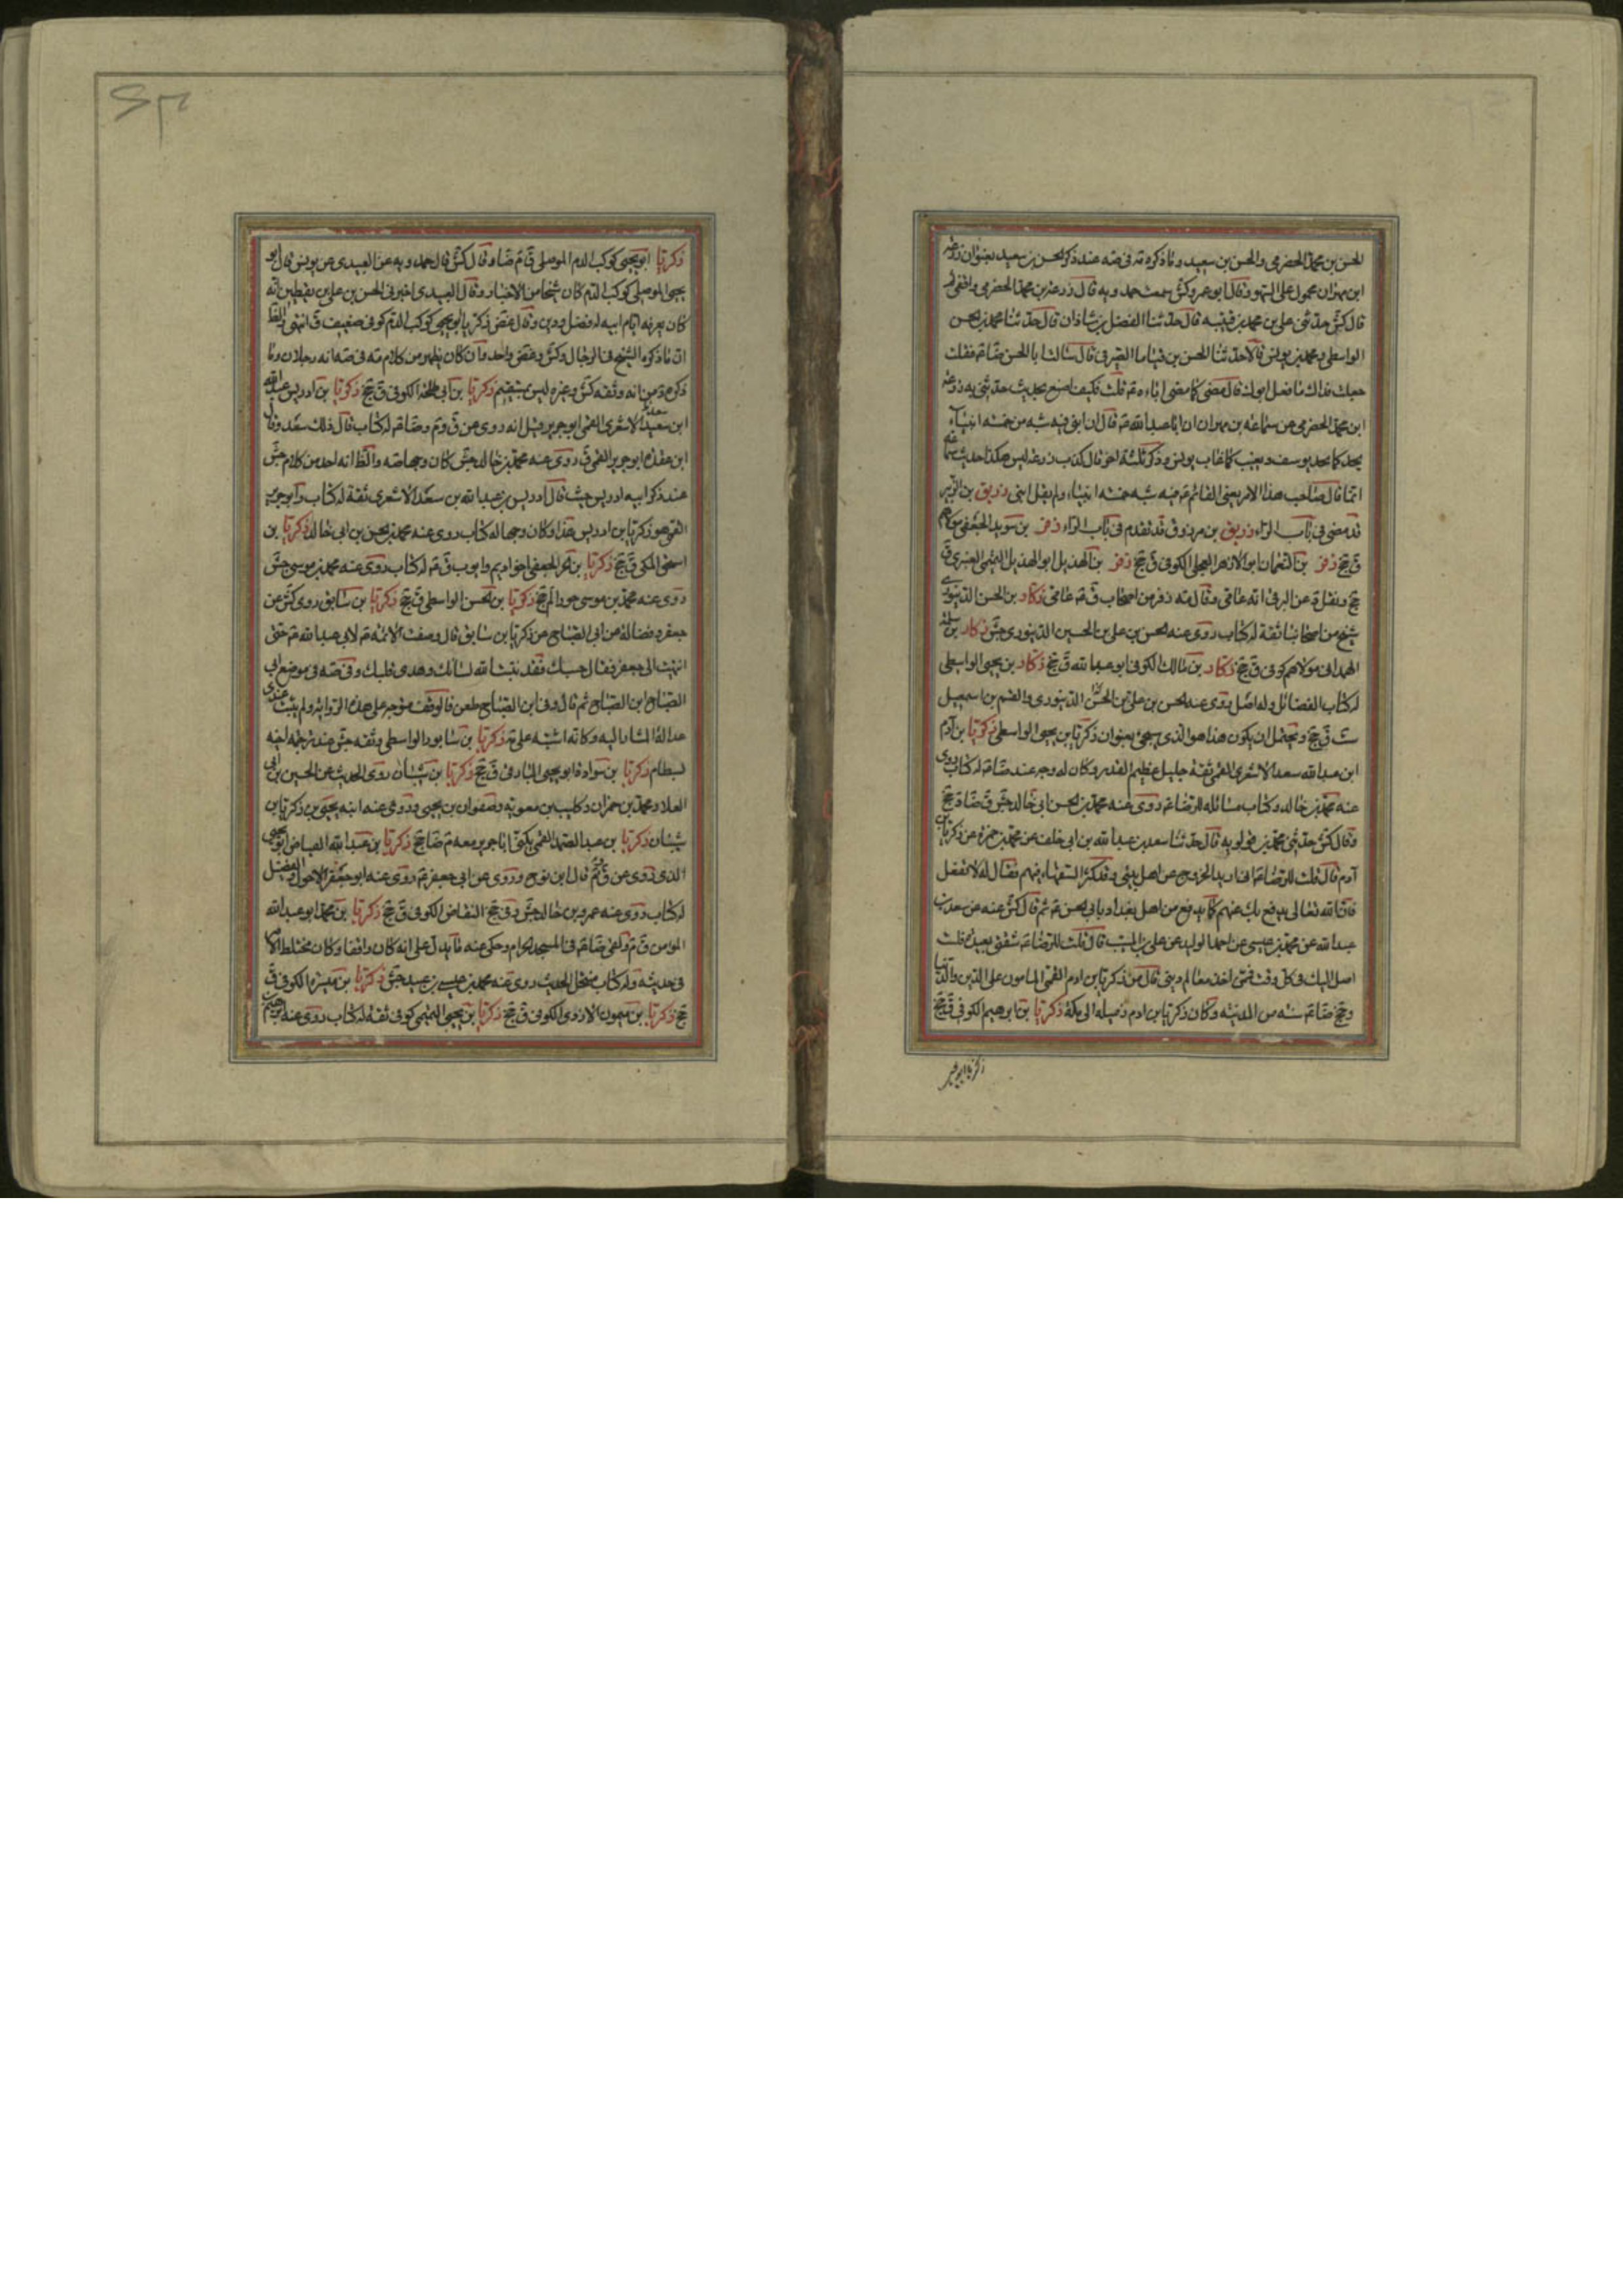 الحسن بن محمد الحضرمي والحسن بن سعيد وما ذكره مة في ضه عند ذكر الحسن بن سعيد بعنوان زرعه
ابن مهران محمول على السهو وقال ابو عمرو كش سمعت حمدويه قال زرعة بن محمد الحضرمي واقفي
قال كش حدثني علي بن محمد بن قتيبه قال حدثنا الفضل بن شاذان قال حدثنا محمد بن الحسن
الواسطي ومحمد بن يونس قالا حدثنا الحسن بن قياما الصيرفي قال سالت ابا الحسن ضا ع فقلت
جعلت فداك ما فعل ابوك قال مضى كما مضى اباءه ع قلت فكيف اصنع بحديث حدثني به زرعه
ابن محمد الحضرمي عن سماعه بن مهران ان ابا عبدالله ع قال ان ابني فيه شبه من خمسه انبياء
يحسد كما حسد يوسف ويغيب كما غاب يونس وذكر ثلثة اخر قال كذب زرعه ليس هكذا حديث سماعه
انما قال صاحب هذا الامر يعني القائم ع فيه شبه خمسه انبياء ولم يقل ابني زريق بن الزبير
قد مضى في باب الراء زريق بن مرزوق قد تقدم في باب الراء زفر بن سويد الجعفي مولاهم
ق جخ زفر بن النعمان ابو الازهر العجلي الكوفي ق جخ زفر بن الهذيل ابو الهذيل التميمي العنبري ق
جخ ونقل عن البرقي انه عامي وقال مة زفر من اصحاب ق ع عامي زكار بن الحسن الدينوري
شيخ من اصحابنا ثقة له كتاب روى عنه الحسن بن علي بن الحسين الدينوري جش زكار بن سلمه
الهمداني مولاهم كوفي ق جخ زكار بن مالك الكوفي ابو عبدالله ق جخ زكار بن يحيى الواسطي
له كتاب الفضائل وله اصل روى عنه الحسن بن علي بن الحسن الدينوري والقسم بن اسمعيل
ست ق جخ ويحتمل ان يكون هذا هو الذي سيجيء بعنوان زكريا بن يحيى الواسطي زكريا بن آدم
ابن عبدالله سعد الاشعري القمي ثقة جليل عظيم القدر وكان له وجه عند ضا ع له كتاب روى
عنه محمد بن خالد وكتاب مسائله للرضا ع روى عنه محمد بن الحسن ابي خالد جش ق ضا د جخ
وقال كش حدثني محمد بن قولويه قال حدثنا سعد بن عبدالله بن ابي خلف عن محمد بن حمزه عن زكريا بن
آدم قال قلت للرضا ع اني اريد الخروج عن اهل بيتي وقد كثر السفهاء فيهم فقال له لا تفعل
فان الله تعالى يدفع بك عنهم كما يدفع من اهل بغداد بابي الحسن ع ثم قال كش عنه عن سعد بن
عبدالله عن محمد بن عيسى عن احمد الوليد عن علي بن المسيب قال قلت للرضا ع شقتي بعيده فلست
اصل اليك في كل وقت فممن اخذ معالم ديني قال من زكريا بن ادم القمي المامون على الدين والدنيا
وحج ضا ع سنه من المدينه وكان زكريا بن ادم زميله الى مكة زكريا بن ابرهيم الكوفي ق جخ
زكريا ابو يحيى
زكريا ابو يحيى كوكب الدم الموصلي ق م ضا وقال كش قال حمدويه عن العبيدي عن يونس قال ابو
يحيى الموصلي كوكب الدم كان شيخا من الاخيار وقال العبيدي اخبرني الحسن بن علي بن يقطين انه
كان يعرفه ايام ابيه له فضل ودين وقال غض زكريا ابو يحيى كوكب الدم كوفي ضعيف ق انتهى والظ
ان ما ذكره الشيخ في الرجال وكش وغض واحد وان كان يظهر من كلام مة في ضه انه رجلان وما
ذكره من انه وثقه كش وغيره ليس بمستقيم زكريا بن ابي طلحة الكوفي ق جخ زكريا بن ادريس عبدالله
ابن سعد الاشعري القمي ابو جرير قيل انه روى عن ق وم وضا ع له كتاب قال ذلك سعد وقال
ابن عقده ابو جرير القمي ق روى عنه محمد بن خالد جش كان وجها ضه والظ انه اخذ من كلام جش
عند ذكر ابيه ادريس حيث قال ادريس بن عبدالله بن سعد الاشعري ثقة له كتاب وابو جرير
القمي هو زكريا بن ادريس هذا وكان وجها له كتاب روى عنه محمد بن الحسن بن ابي خالد زكريا بن
اسحق المكي ق جخ زكريا بن الحر الجعفي اخو اديم وايوب ق ع له كتاب روى عنه محمد بن موسى جش
روى عنه محمد بن موسى حورا لم جخ زكريا بن الحسن الواسطي ق جخ زكريا بن سابق روى كش عن
جعفر وفضالة عن ابي الصباح عن زكريا بن سابق قال وصفت الائمه ع لابي عبدالله ع حتى
انتهيت الى جعفر فقال حسبك فقد ثبت الله لسانك وهدى قلبك وفي ضه في موضع ابي
الصباح ابن الصباح ثم قال وفي ابن الصباح طعن فالوقف متوجه على هذه الروايه ولم يثبت عندي
عدالة المشار اليه وكانه اشتبه على مة زكريا بن سابور الواسطي وثقه جش عند ترجمة اخيه
بسطام زكريا بن سواده ابو يحيى البارقي ق جخ زكريا بن شيبان روى الحديث عن الحسين بن ابي
العلا ومحمد بن حمران وكليب بن معويه وصفوان بن يحيى وروى عنه ابنه يحيى بن زكريا بن
شيبان زكريا بن عبد الصمد القمي يكنى ابا جرير معه م ضا جخ زكريا بن عبدالله الفياض ابو يحيى
الذي روى عن ق م قال ابن نوح وروى عن ابي جعفر ع روى عنه ابو جعفر الاحول والفضل
له كتاب روى عنه عمرو بن خالد جش وفي جخ النقاض الكوفي ق جخ زكريا بن محمد ابو عبدالله
المؤمن ق م ولقي ضا ع في المسجد الحرام وحكى عنه ما يدل على انه كان واقفا وكان مختلط الامر
في حديثه وله كتاب منتحل الحديث روى عنه محمد بن عيسى بن عبيد جش زكريا بن ميسره الكوفي ق
جخ زكريا بن ميمون الازدي الكوفي ق جخ زكريا بن يحيى التميمي كوفي ثقة له كتاب روى عنه